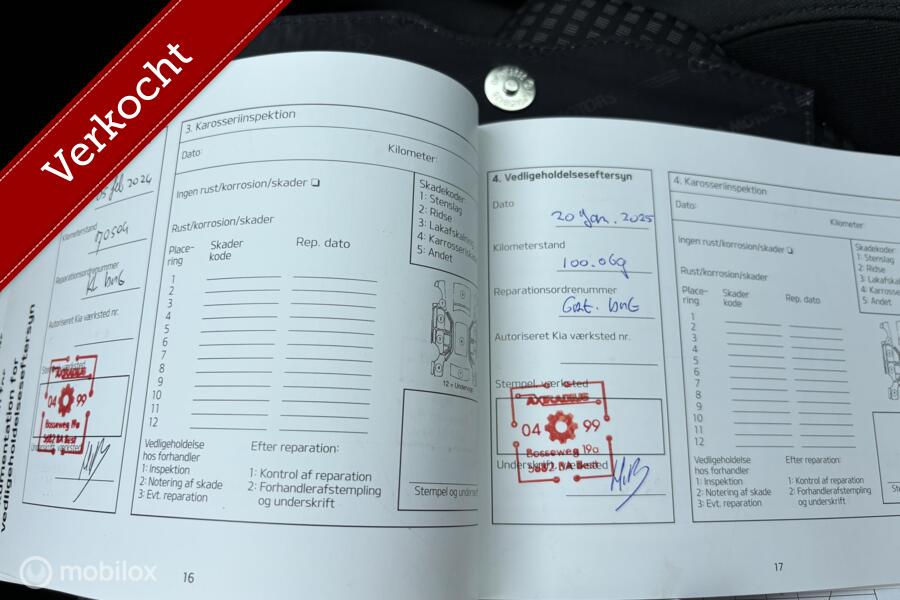 Verkocht
3. Karosseriinspektion
Dato:
Kilometer:
Ingen rust/korrosion/skader
Rust/korrosion/skader
Place-
ring
Skader
kode
Rep. dato
1
2
3
4
5
6
7
8
9
10
11
12
Skadekoder
1: Stenslag
2: Ridse
3: Lakafskalning
4: Karrosseriskade
5: Andet
Vedligeholdelse
hos forhandler
1: Inspektion
2: Notering af skade
3: Evt. reparation
Efter reparation:
1: Kontrol af reparation
2: Forhandlerafstempling
og underskrift
Stempel og underskrift
16
feb 2024
Kilometerstand
Reparationsordrenummer
Autoriseret Kia værksted nr.
04 99
Bosseweg 19a
5682 BA Best
vedligeholdelseseftersyn
4. Vedligeholdelseseftersyn
Dato
20 Jan. 2025
Kilometerstand
100.069
Reparationsordrenummer
Autoriseret Kia værksted nr.
Stempel, værksted
04 99
Bosseweg 19a
5682 BA Best
Underskrift, værksted
4. Karosseriinspektion
Dato:
Kilometer:
Ingen rust/korrosion/skader
Rust/korrosion/skader
Place-
ring
Skader
kode
Rep. dato
1
2
3
4
5
6
7
8
9
10
11
12
Skadekoder
1: Stenslag
2: Ridse
3: Lakafskal
4: Karrosse
5: Andet
Vedligeholdelse
hos forhandler
1: Inspektion
2: Notering af skade
3: Evt. reparation
Efter reparation:
1: Kontrol af reparation
2: Forhandlerafstempling
og underskrift
17
mobilox